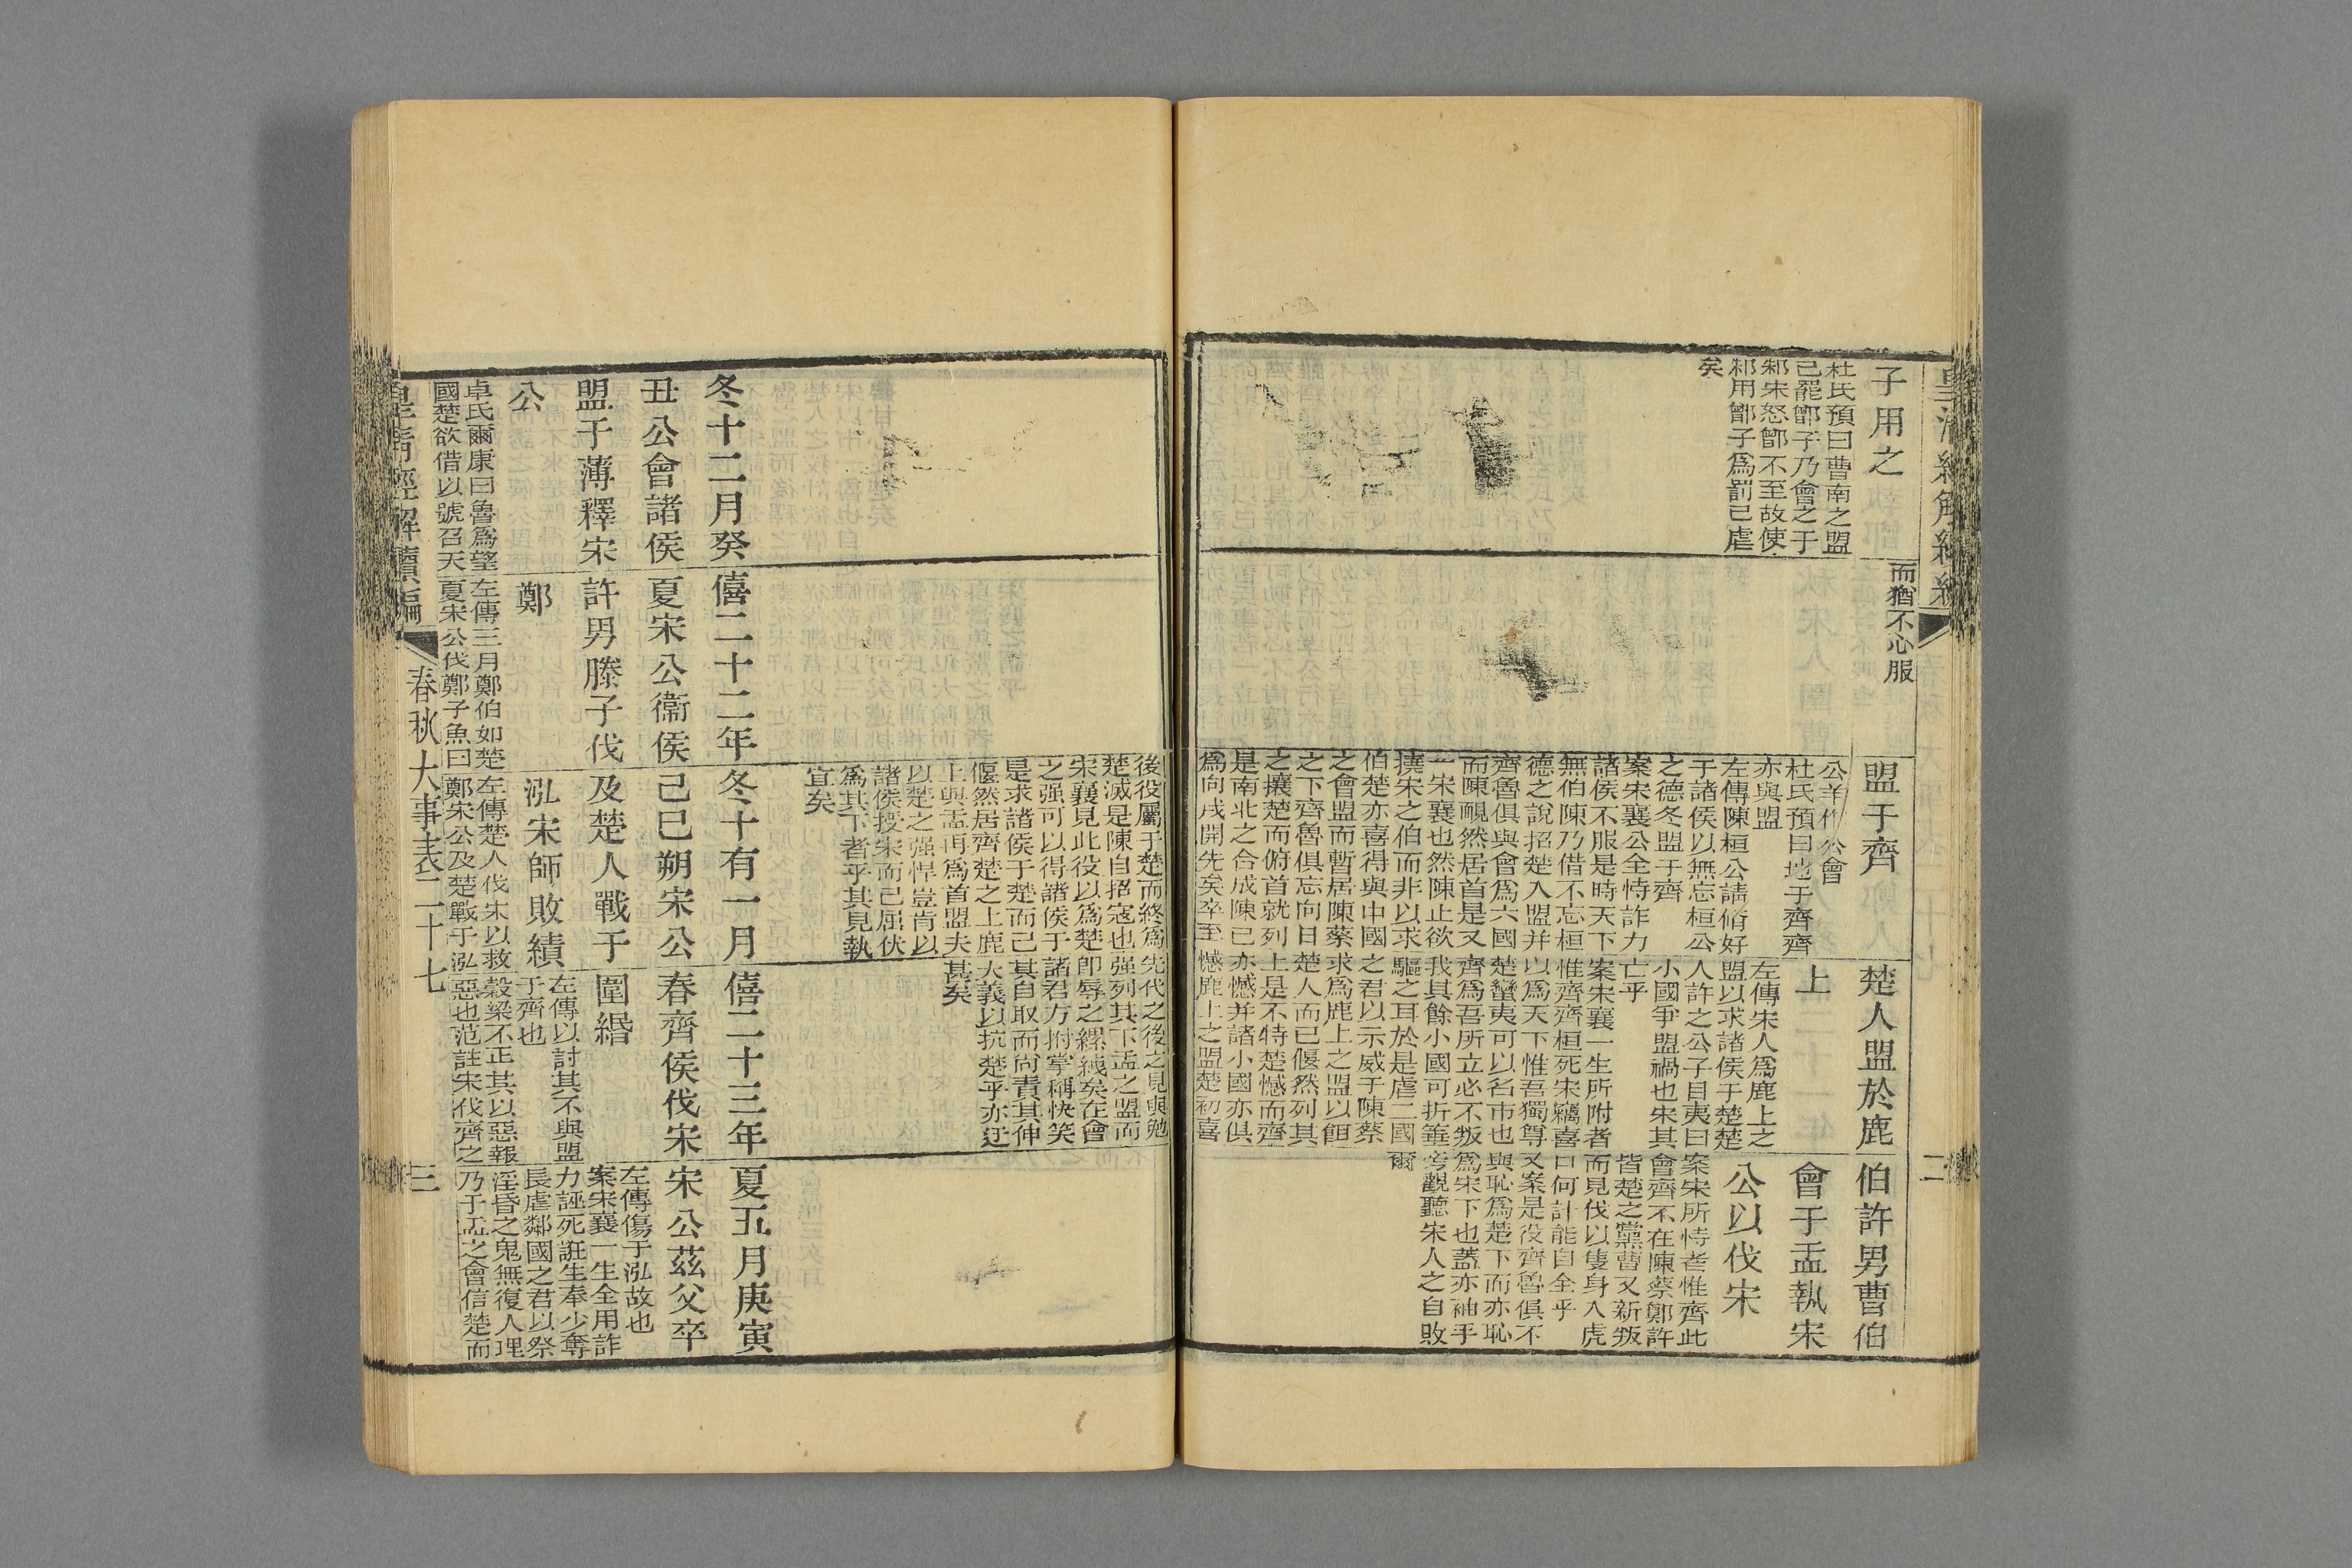 子用之
杜氏預曰曹南之盟
已罷鄫子乃會之于
邾宋怒鄫不至故使
邾用鄫子爲罰已虐
矣
而猶不心服
盟于齊
公羊作公會
杜氏預曰地于齊齊
亦與盟
左傳陳桓公請脩好
于諸侯以無忘桓公
之德冬盟于齊
案宋襄公全恃詐力
諸侯不服是時天下
無伯陳乃借不忘桓
德之說招楚入盟并
齊魯俱與會爲六國
而陳靦然居首是又
一宋襄也然陳止欲
撓宋之伯而非以求
伯楚亦喜得與中國
之會盟而暫居陳蔡
之下齊魯俱忘向日
之攘楚而俯首就列
是南北之合成陳已
爲向戌開先矣卒至
楚人盟於鹿
上
左傳宋人爲鹿上之
盟以求諸侯于楚楚
人許之公子目夷曰
小國爭盟禍也宋其
亡乎
案宋襄一生所附者
惟齊齊桓死宋竊喜
以爲天下惟吾獨尊
楚蠻夷可以名市也
齊爲吾所立必不叛
我其餘小國可折箠
驅之耳於是虐二國
之君以示威于陳蔡
求爲鹿上之盟以餌
楚人而已偃然列其
上是不特楚憾而齊
亦憾并諸小國亦俱
憾鹿上之盟楚初喜
伯許男曹伯
會于盂執宋
公以伐宋
案宋所恃者惟齊此
會齊不在陳蔡鄭許
皆楚之黨曹又新叛
而見伐以隻身入虎
口何計能自全乎
又案是役齊魯俱不
與恥爲楚下而亦恥
爲宋下也蓋亦袖手
旁觀聽宋人之自敗
爾
二
後役屬于楚而終爲
楚滅是陳自招寇也
宋襄見此役以爲楚
之强可以得諸侯于
是求諸侯于楚而己
偃然居齊楚之上鹿
上與盂再爲首盟夫
以楚之强悍豈肯以
諸侯授宋而已屈伏
爲其下者乎其見執
宜矣
先代之後之見與勉
强列其下盂之盟而
卽辱之縲絏矣在會
諸君方拊掌稱快笑
其自取而尙責其伸
大義以抗楚乎亦迂
甚矣
冬十二月癸
丑公會諸侯
盟于薄釋宋
公
卓氏爾康曰魯爲望
國楚欲借以號召天
僖二十二年
夏宋公衞侯
許男滕子伐
鄭
左傳三月鄭伯如楚
夏宋公伐鄭子魚曰
冬十有一月
己巳朔宋公
及楚人戰于
泓宋師敗績
左傳楚人伐宋以救
鄭宋公及楚戰于泓
僖二十三年
春齊侯伐宋
圍緡
左傳以討其不與盟
于齊也
穀梁不正其以惡報
惡也范註宋伐齊之
夏五月庚寅
宋公茲父卒
左傳傷于泓故也
案宋襄一生全用詐
力誣死誑生奉少奪
長虐鄰國之君以祭
淫昏之鬼無復人理
乃于盂之會信楚而
皇清經解續編
春秋大事表二十七
三